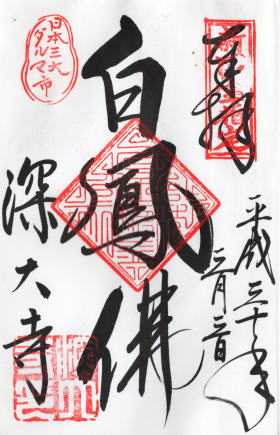 奉拝
平成三十年
三月三日
白鳳佛
日本三大
ダルマ市
深大寺